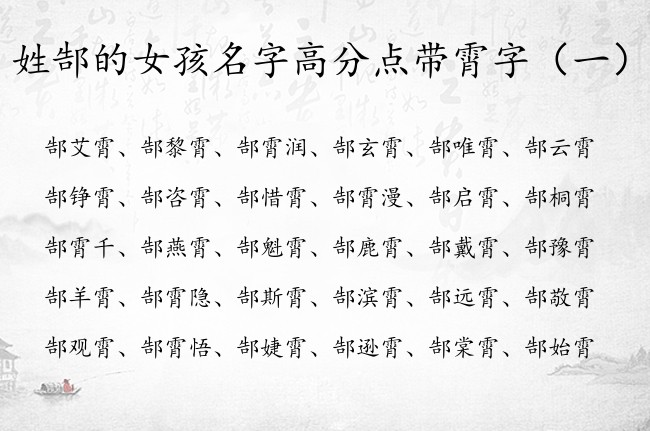 姓郜的女孩名字高分点带霄字（一）
郜艾霄、郜黎霄、郜霄润、郜玄霄、郜唯霄、郜云霄
郜铮霄、郜咨霄、郜惜霄、郜霄漫、郜启霄、郜桐霄
郜霄千、郜燕霄、郜魁霄、郜鹿霄、郜戴霄、郜豫霄
郜羊霄、郜霄隐、郜斯霄、郜滨霄、郜远霄、郜敬霄
郜观霄、郜霄悟、郜婕霄、郜逊霄、郜棠霄、郜始霄